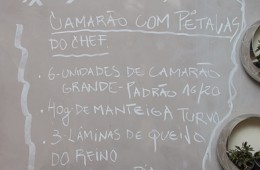 CAMARÃO COM PÉTALAS
DO CHEF
• 6-UNIDADES DE CAMARÃO
GRANDE - PADRÃO 16/20
• 40g DE MANTEIGA TURVA
• 3-LÂMINAS DE QUEIJO
DO REINO